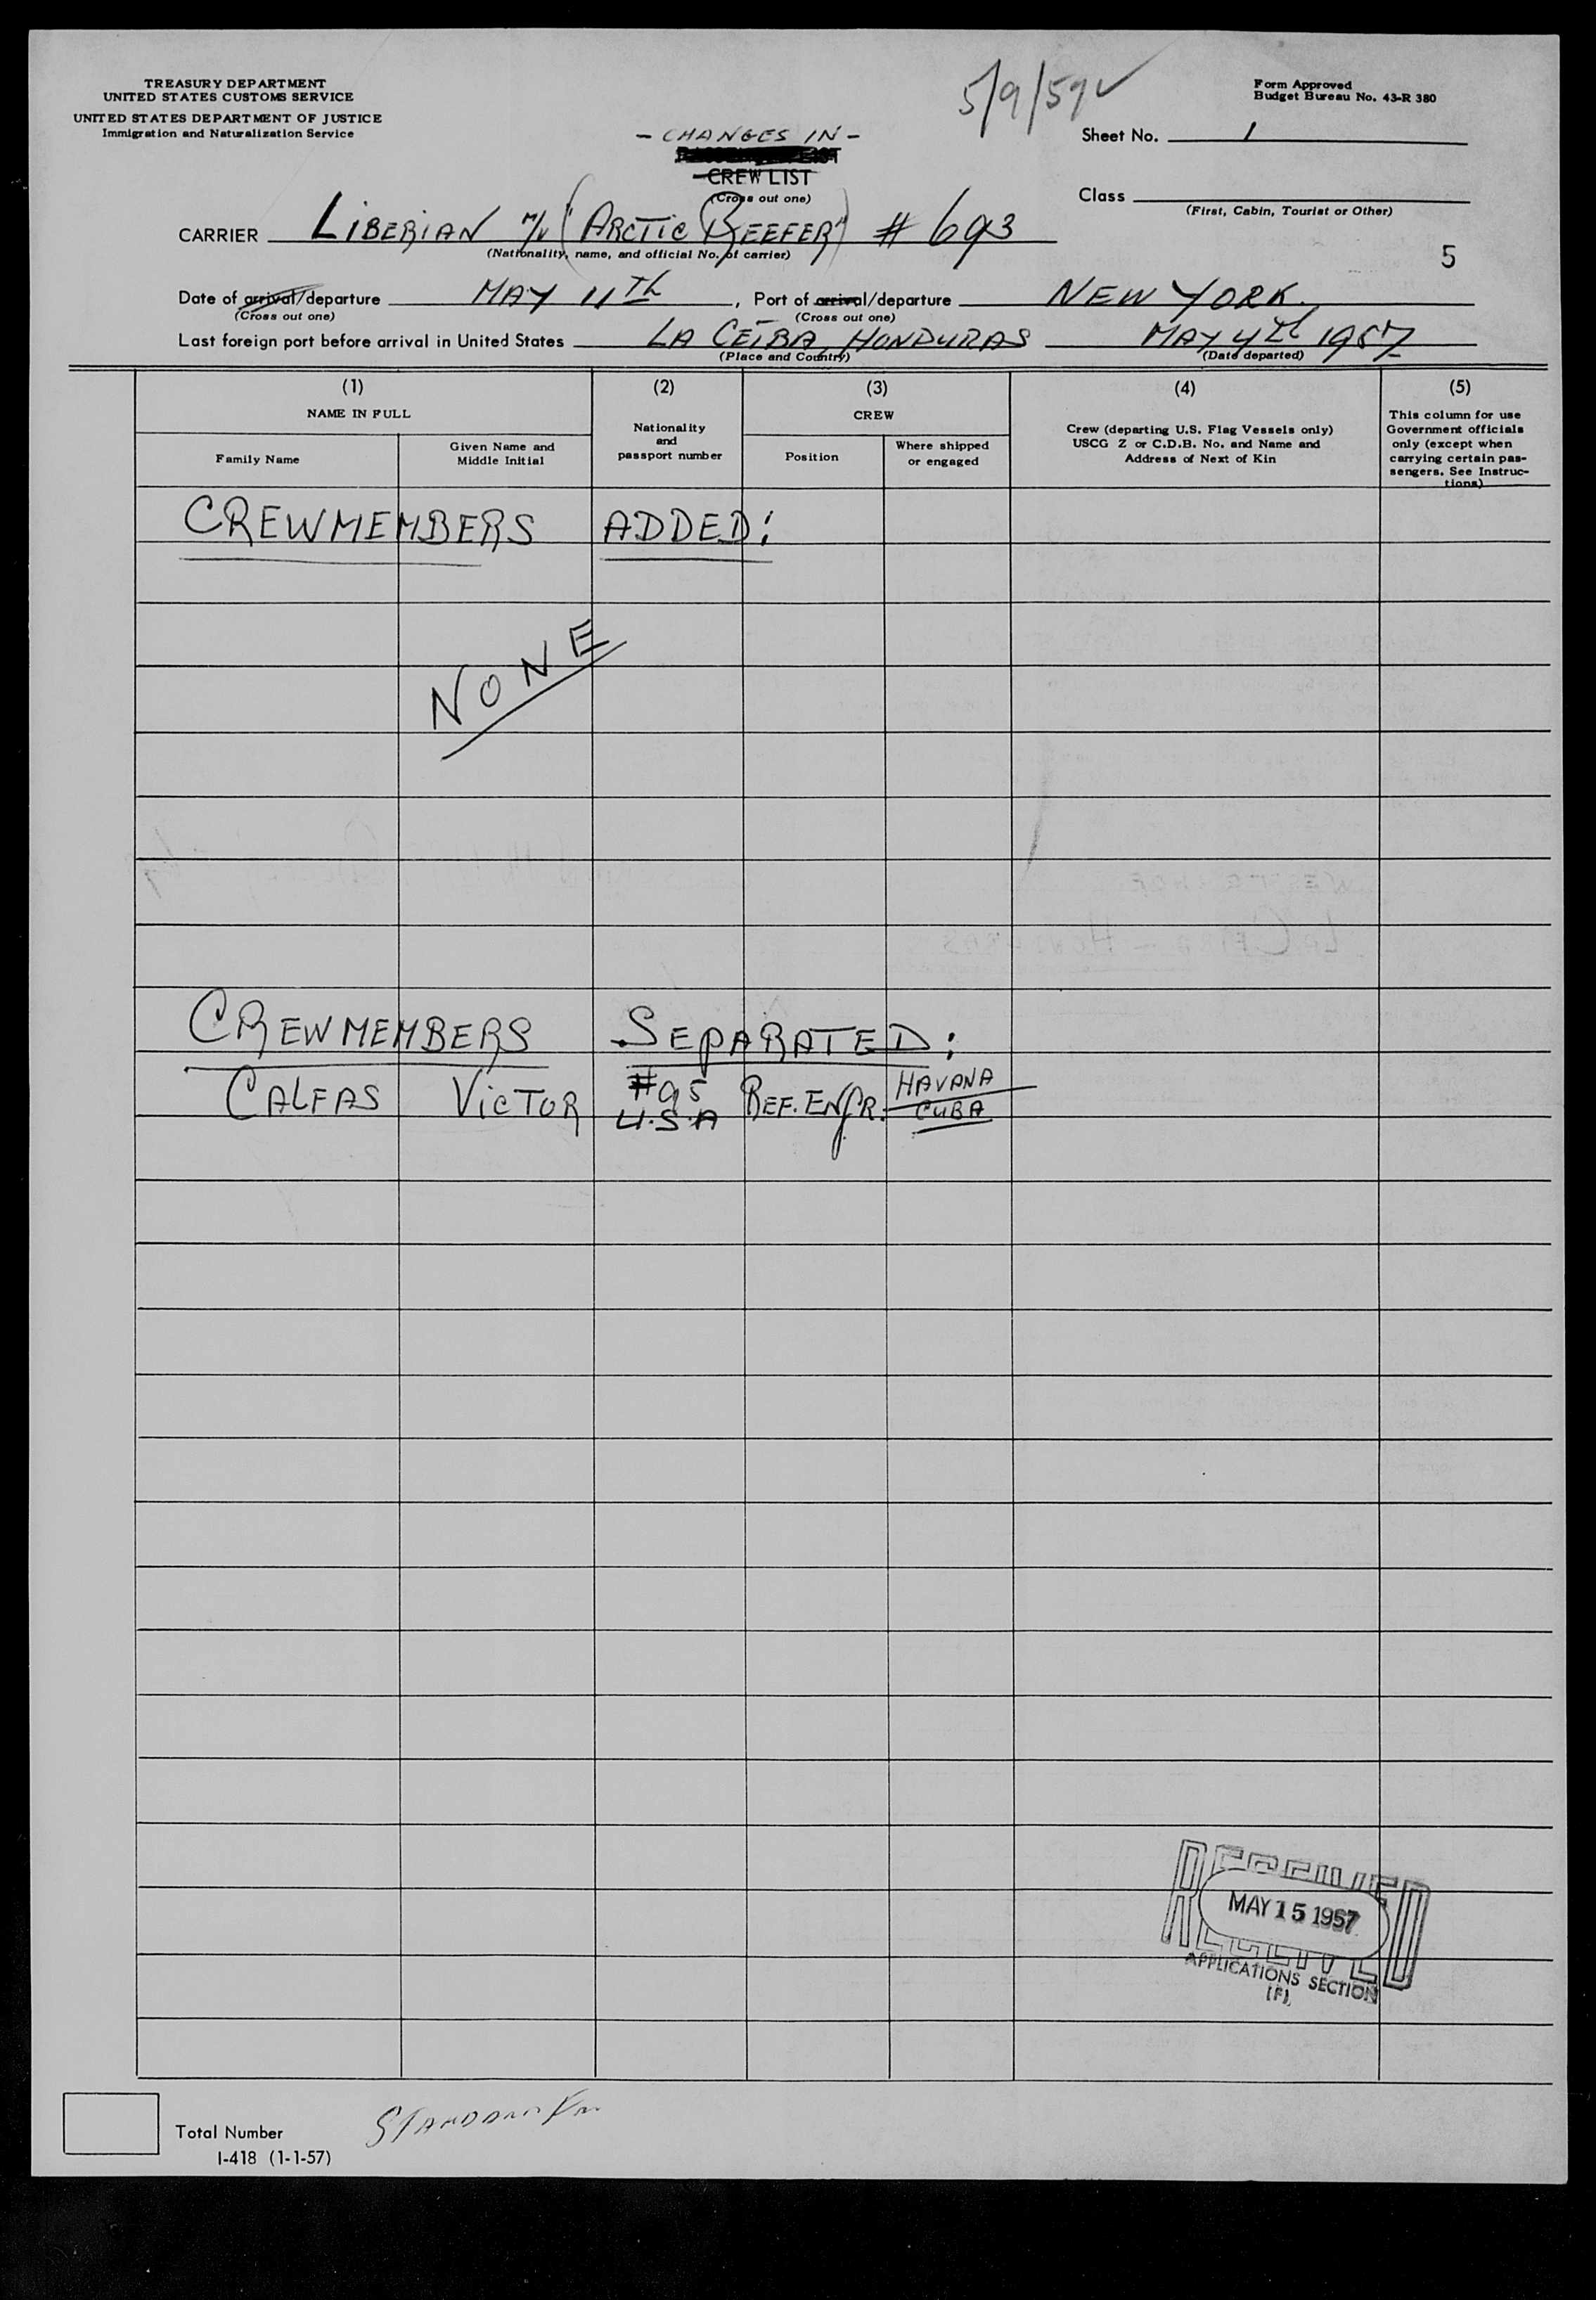 TREASURY DEPARTMENT
UNITED STATES CUSTOMS SERVICE
UNITED STATES DEPARTMENT OF JUSTICE
Immigration and Naturalization Service
5/9/57 ✓
Form Approved
Budget Bureau No. 43-R 380
Sheet No. 1
- CHANGES IN -
CREW LIST
(Cross out one)
Class
(First, Cabin, Tourist or Other)
CARRIER LIBERIAN M/V "ARCTIC REEFER" # 693
(Nationality, name, and official No. of carrier)
5
Date of arrival/departure MAY 11th, Port of arrival/departure NEW YORK.
(Cross out one) (Cross out one)
Last foreign port before arrival in United States LA CEIBA, HONDURAS MAY 4th 1957
(Place and Country) (Date departed)
(1) (2) (3) (4) (5)
NAME IN FULL
Family Name
Given Name and
Middle Initial
Nationality
and
passport number
CREW
Position
Where shipped
or engaged
Crew (departing U.S. Flag Vessels only)
USCG Z or C.D.B. No. and Name and
Address of Next of Kin
This column for use
Government officials
only (except when
carrying certain pas-
sengers. See Instruc-
tions)
CREWMEMBERS ADDED:
NONE
CREWMEMBERS SEPARATED:
CALFAS VICTOR #95 U.S.A REF. ENGR. HAVANA CUBA
RECEIVED
MAY 15 1957
RECEIVED
APPLICATIONS SECTION
(F)
Total Number
I-418 (1-1-57)